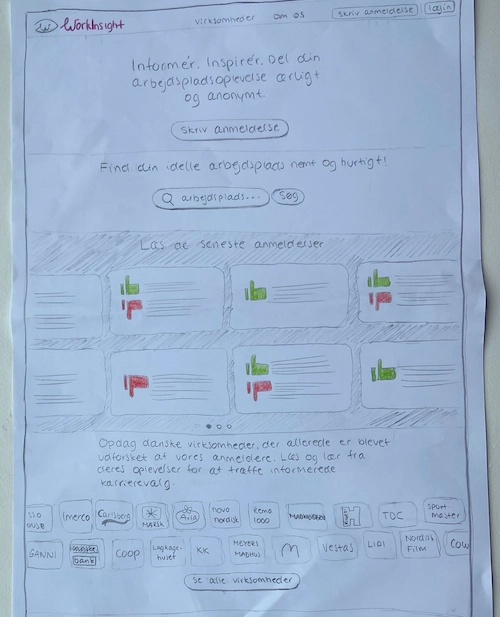 WorkInsight
virksomheder om os skriv anmeldelse login
Informér. Inspirér. Del din
arbejdspladsoplevelse ærligt
og anonymt.
Skriv anmeldelse
Find din idelle arbejdsplads nemt og hurtigt!
arbejdsplads... Søg
Læs de seneste anmeldelser
Opdag danske virksomheder, der allerede er blevet
udforsket af vores anmeldere. Læs og lær fra
deres oplevelser for at træffe informerede
karrierevalg.
Imerco Carlsberg MÆRSK Arla novo nordisk Rema 1000 TDC Sport master
GANNI Danske bank COOP Lagkage- huset KK MEYERS MADHUS M Vestas LIDL Nordisk Film COW
Se alle virksomheder